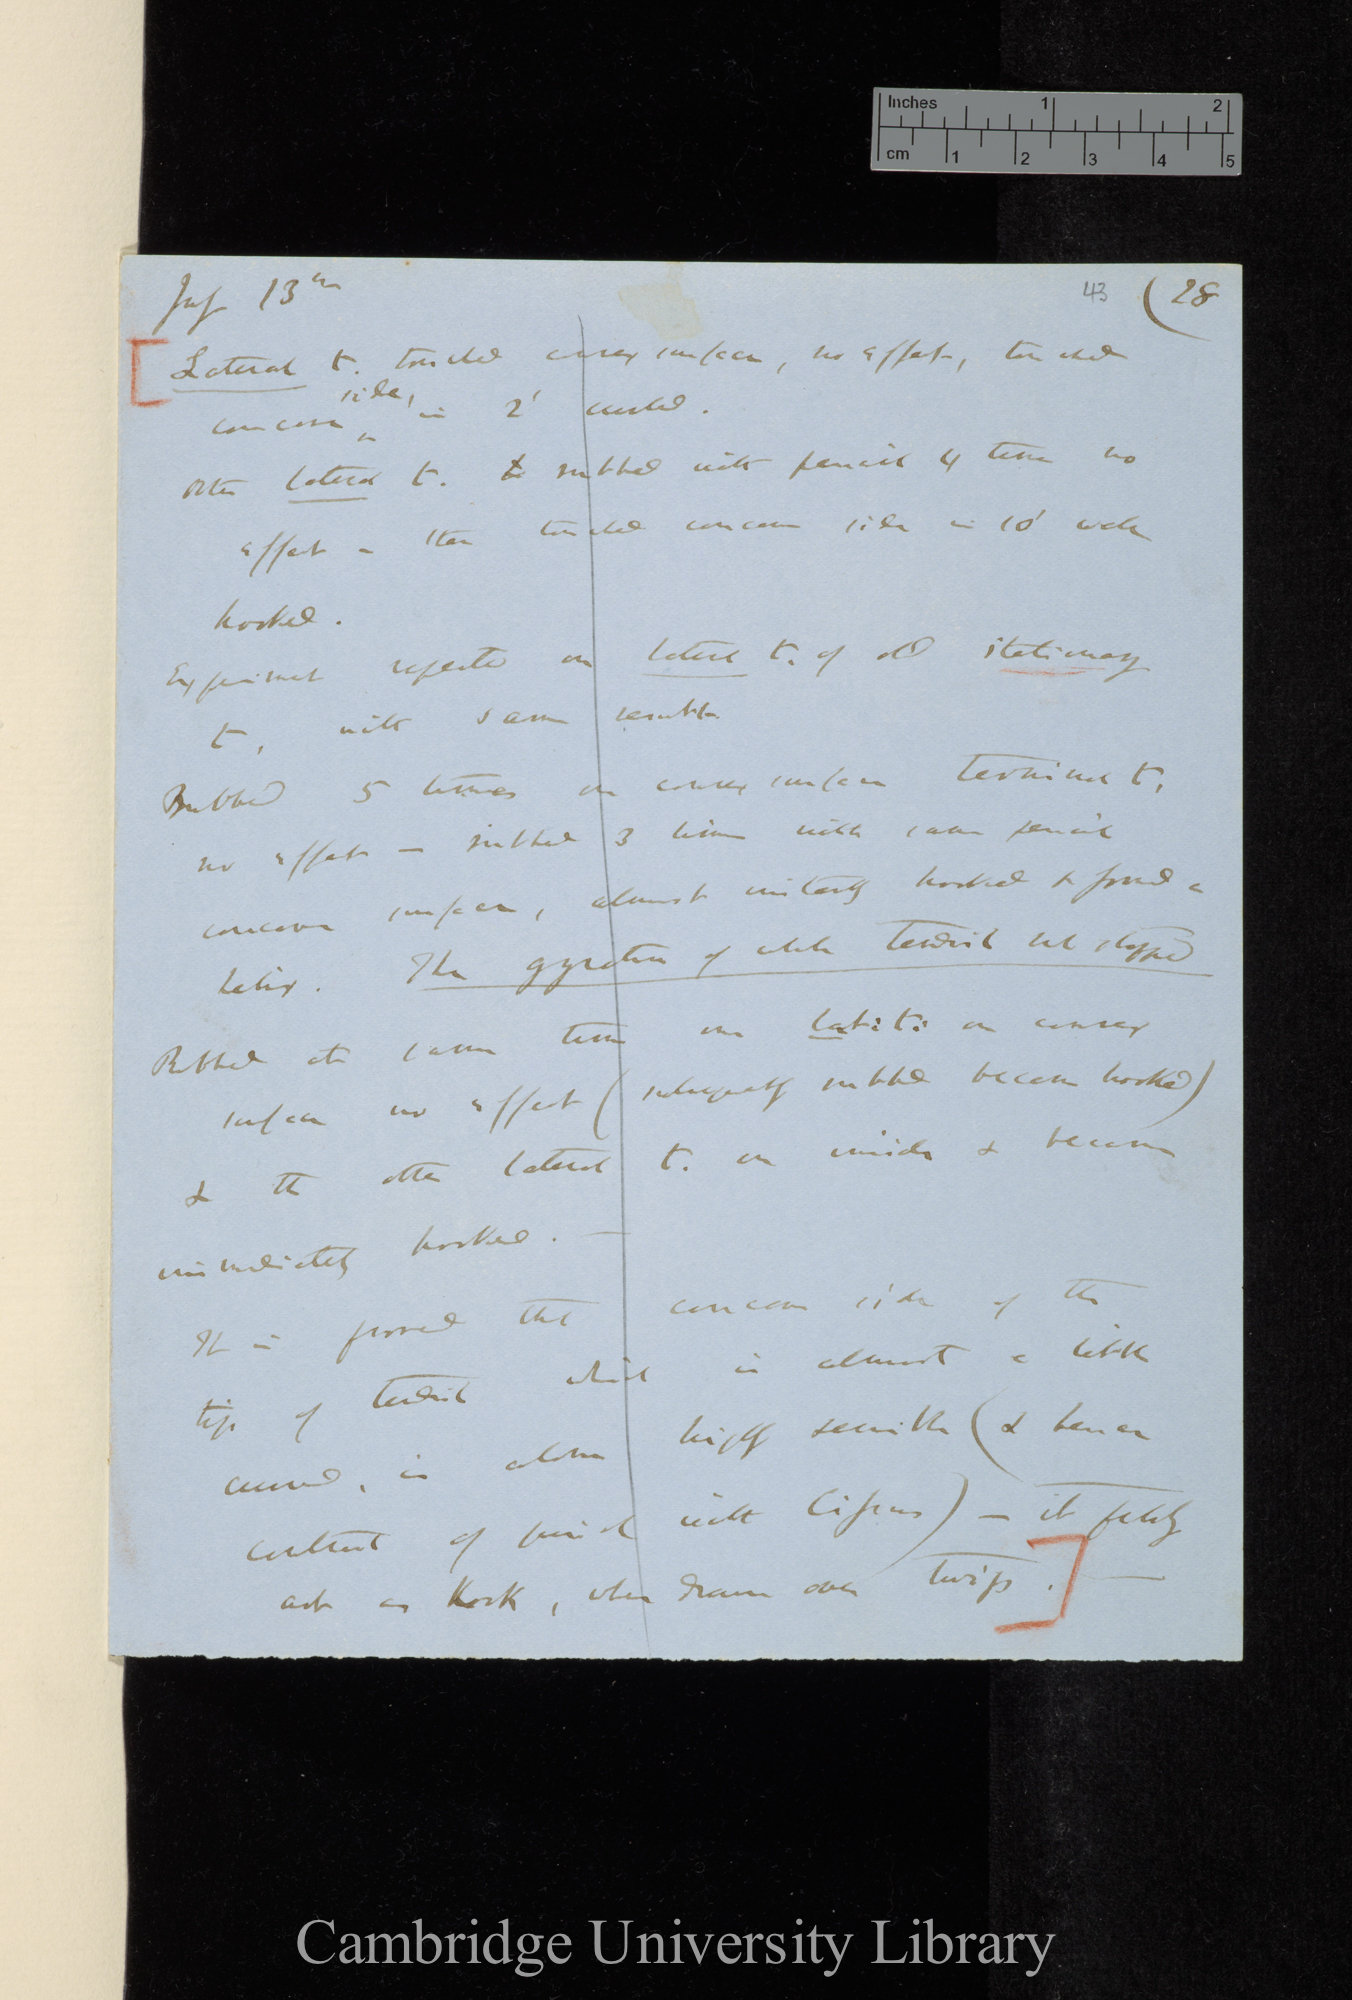 Inches 1 2
cm 1 2 3 4 5
July 13th 43 (28
Lateral t. touched convex surface, no effect, touched
side,
concave in 2' curled.
other lateral t. rubbed with pencil 4 times no
effect – then touched concave side in 10' well
hooked.
Experiment repeated on lateral t. of old stationary
t, with same result.
Rubbed 5 times on convex surface terminal t,
no effect — rubbed 3 times with same pencil
concave surface, almost instantly hooked & formed a
helix. The gyration of whole tendril not stopped
Rubbed at same time one lat: t: on convex
surface no effect (subsequently rubbed became hooked)
& the other lateral t. on inside & became
immediately hooked. —
It is proved that concave side of the
tip of tendril which is almost a little
curved, is alone highly sensitive (& hence
contrast of with Cissus) — it
act as Hook, when drawn over twigs. —
Cambridge University Library